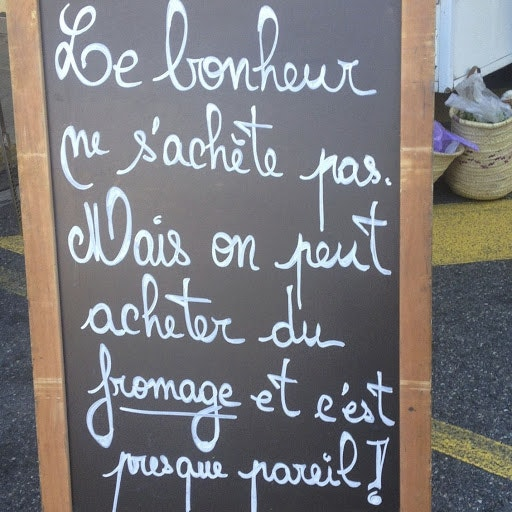 Le bonheur
ne s'achète pas.
Mais on peut
acheter du
fromage et c'est
presque pareil !